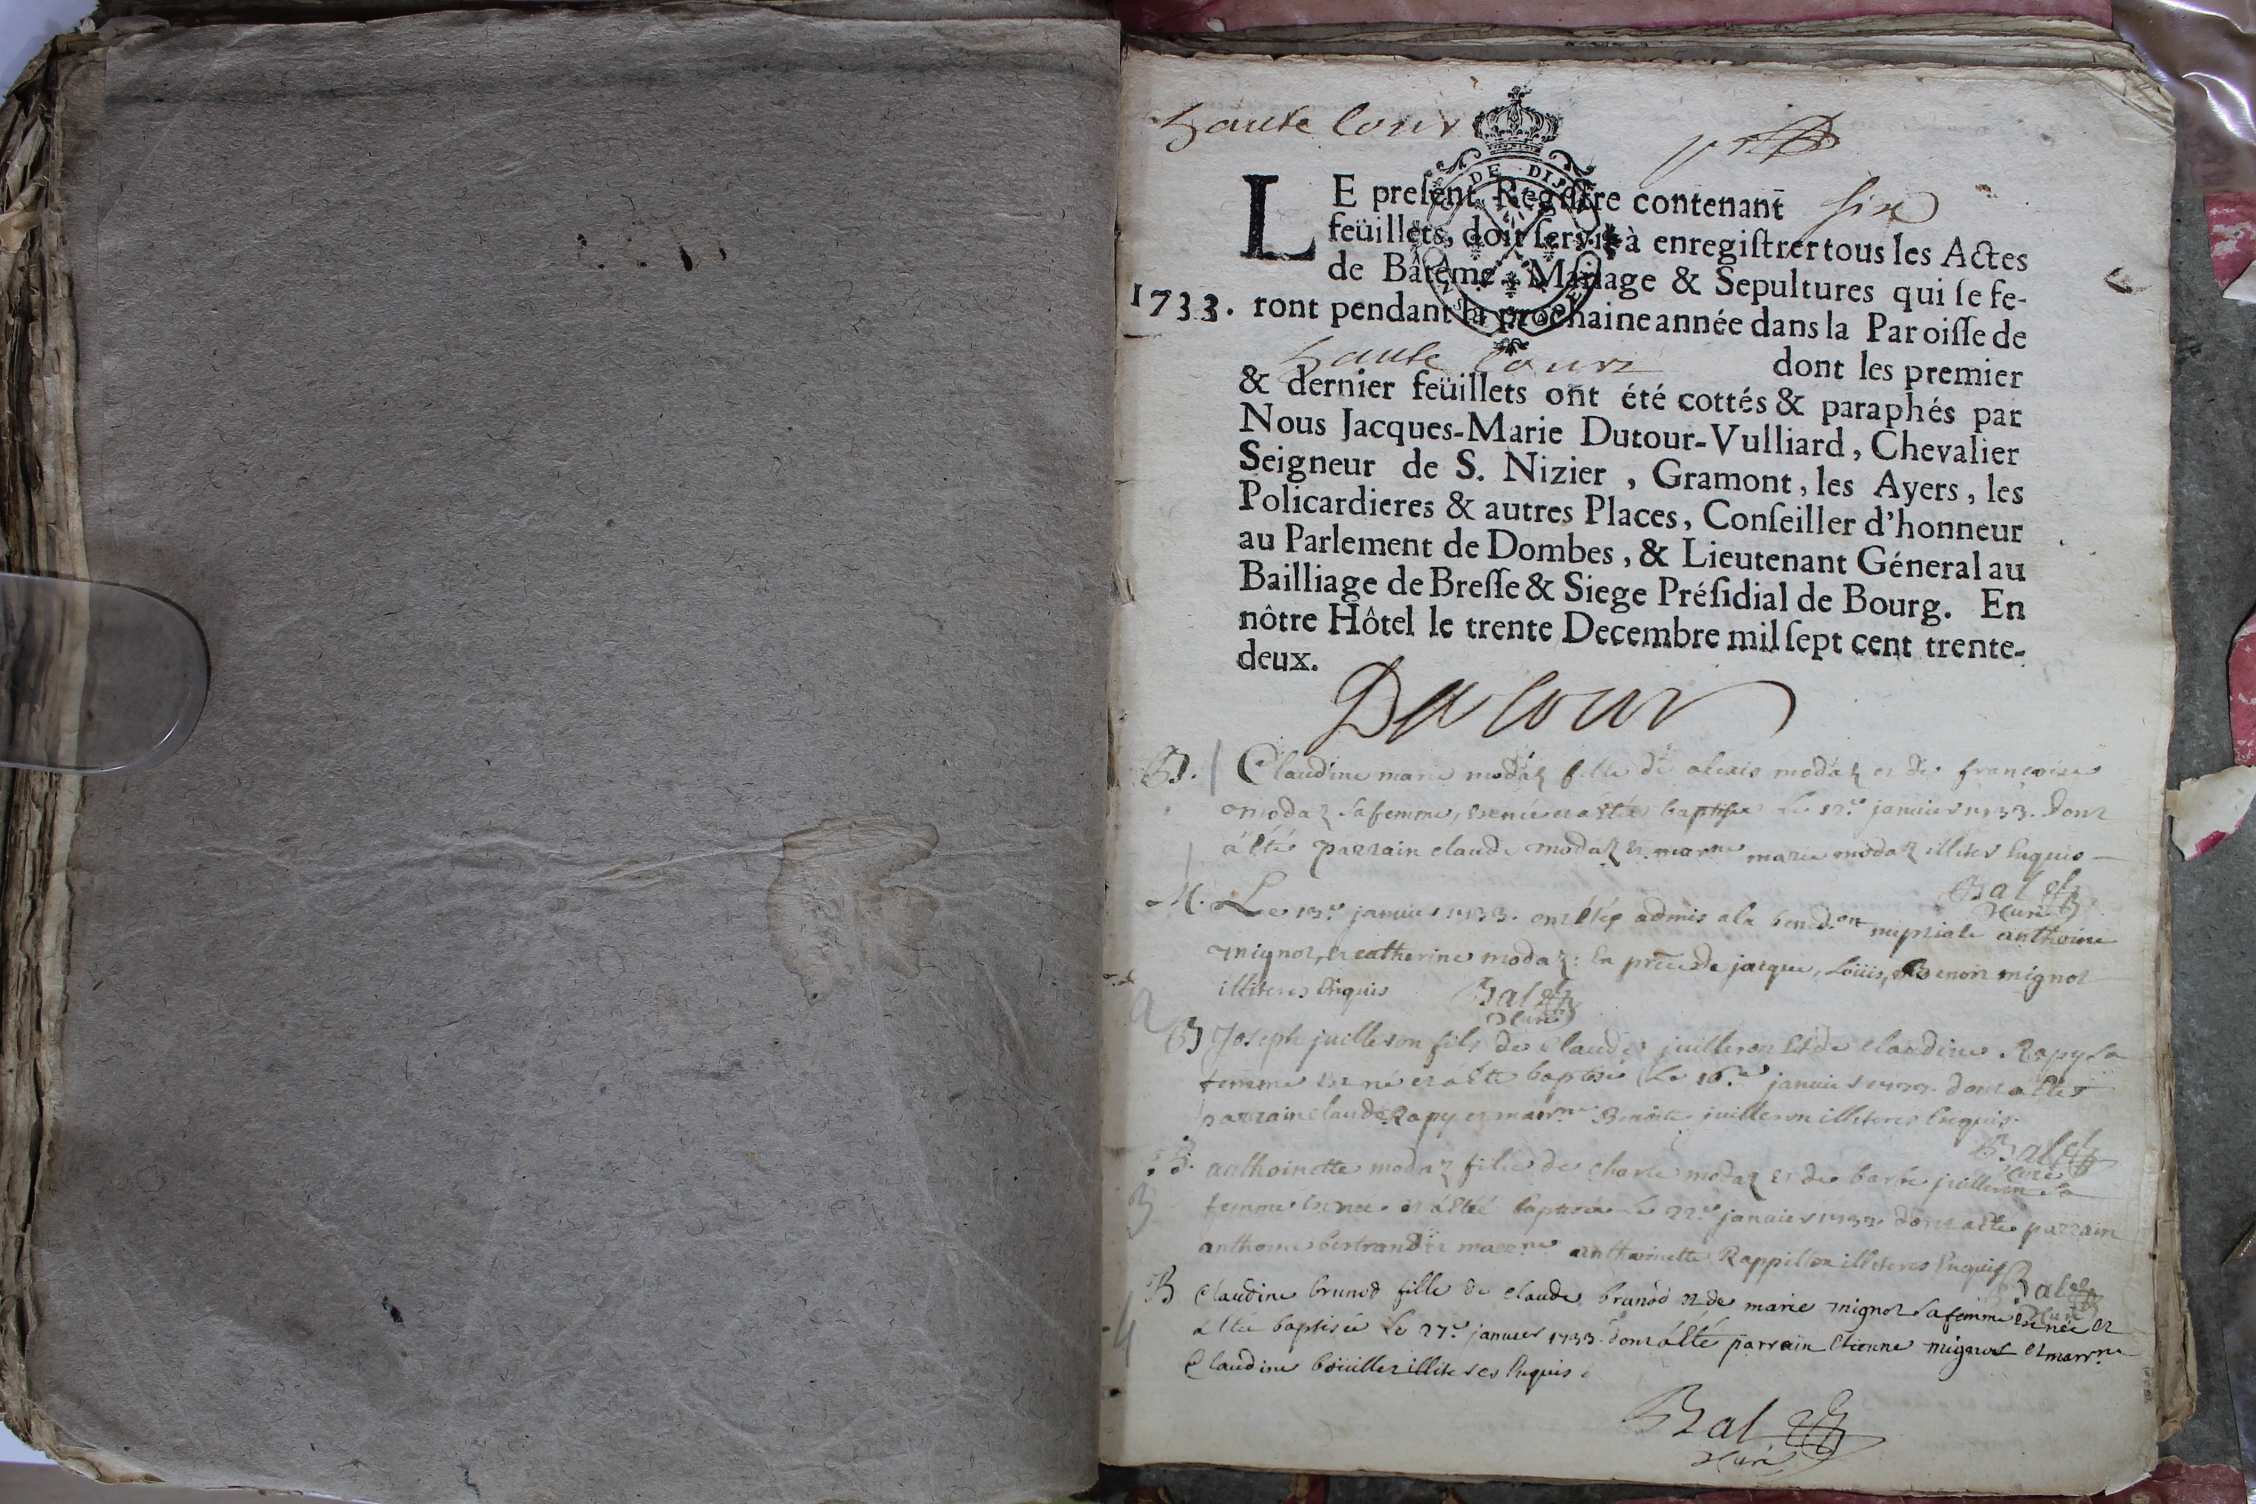 haute Cour
DE DIJON
LE preſent Regiſtre contenant six
feüillets, doit ſervir à enregiſtrer tous les Actes
de Bâtême, Mariage & Sepultures qui ſe fe-
1733. ront pendant la prochaine année dans la Paroiſſe de
haute Cour dont les premier
& dernier feüillets ont été cottés & paraphés par
Nous Jacques-Marie Dutour-Vulliard, Chevalier
Seigneur de S. Nizier, Gramont, les Ayers, les
Policardieres & autres Places, Conſeiller d'honneur
au Parlement de Dombes, & Lieutenant Géneral au
Bailliage de Breſſe & Siege Préſidial de Bourg. En
nôtre Hôtel le trente Decembre mil ſept cent trente-
deux.
Dutour
B. Claudine marie modaz fille de alexis modaz et de françoise
modaz sa femme, est née et a été baptisée Le 12.e janvier 1733. dont
a été parrain claude modaz et marne marie modaz illiteres enquis
Bal
Curé
M. Le 13.e janvier 1733. ont été admis a la bened.on nuptiale anthoine
mignot, et catherine modaz: en pnce de jacque, Loüis, et Benoit mignot
illiteres enquis Bal
Curé
B Joseph juilleron fils de claude juilleron et de claudine Rapy sa
femme est né et a été baptisé Le 16.e janvier 1733. dont a été
parrain claude Rapy et marne Benoite juilleron illiteres enquis.
Bal
Curé
B. anthoinette modaz fille de charle modaz et de barbe juilleron sa
femme est née et a été baptisée Le 22.e janvier 1733 dont a été parrain
anthoine bertrand et marne anthoinette Rappillon illiteres enquis
Bal
Curé
B Claudine brunod fille de claude brunod et de marie mignot sa femme est née et
a été baptisée Le 27.e janvier 1733. dont a été parrain Etienne mignot et marne
Claudine boüiller illiteres enquis.
Bal
Curé